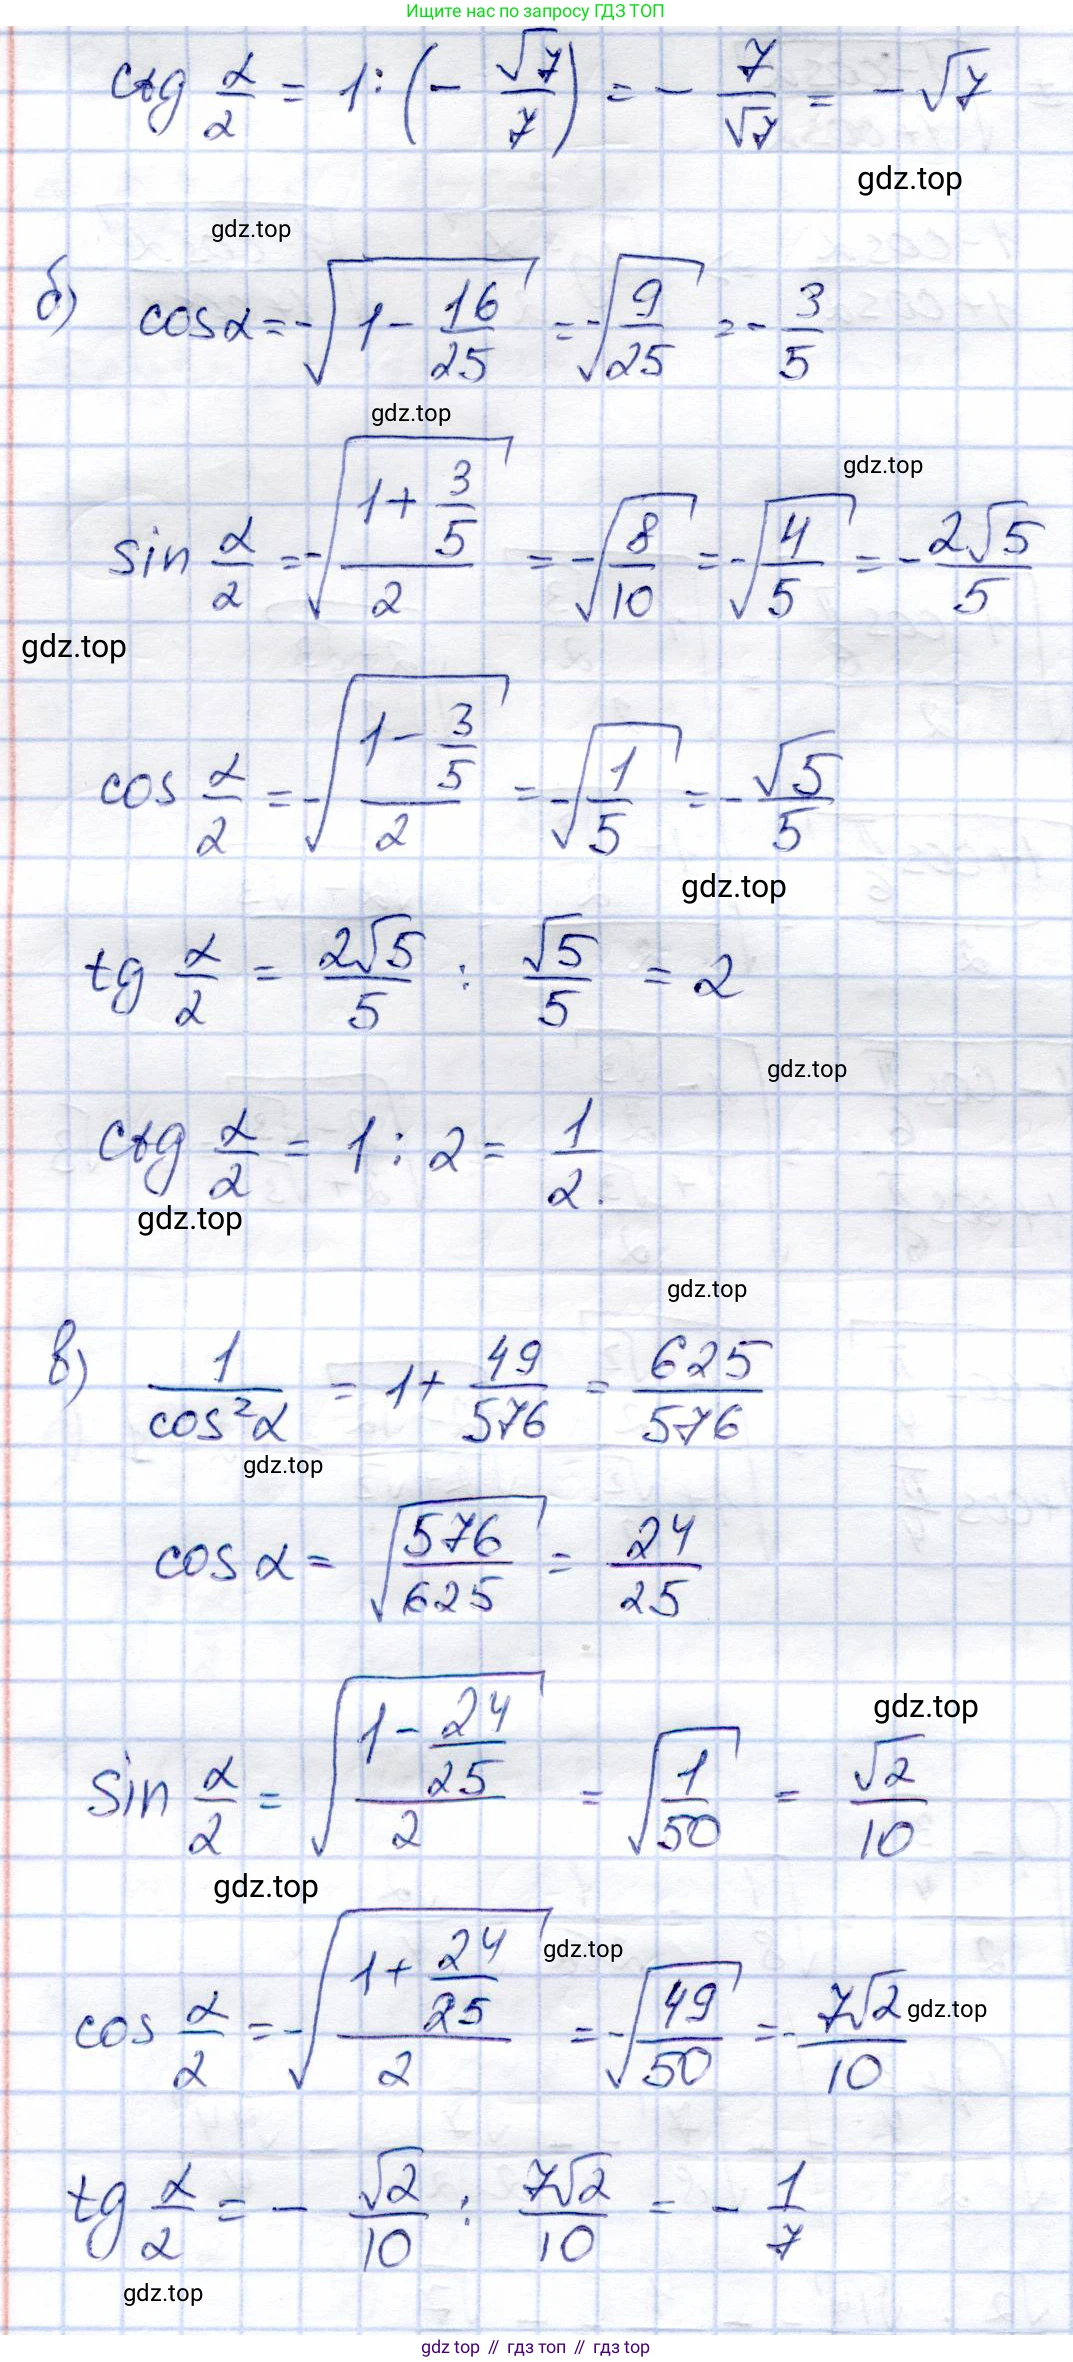 Ищите нас по запросу ГДЗ ТОП
ctg α/2 = 1 : (- √7/7) = - 7/√7 = - √7
gdz.top
gdz.top
б) cosα = -√(1 - 16/25) = -√(9/25) = - 3/5
gdz.top
gdz.top
sin α/2 = -√((1 + 3/5)/2) = -√(8/10) = -√(4/5) = - 2√5/5
gdz.top
cos α/2 = -√((1 - 3/5)/2) = -√(1/5) = - √5/5
gdz.top
tg α/2 = 2√5/5 : √5/5 = 2
gdz.top
ctg α/2 = 1 : 2 = 1/2.
gdz.top
gdz.top
в) 1/cos²α = 1 + 49/576 = 625/576
gdz.top
cos α = √(576/625) = 24/25
gdz.top
sin α/2 = √((1 - 24/25)/2) = √(1/50) = √2/10
gdz.top
gdz.top
cos α/2 = -√((1 + 24/25)/2) = -√(49/50) = - 7√2/10
gdz.top
tg α/2 = - √2/10 : 7√2/10 = - 1/7
gdz.top
gdz top // гдз топ // гдз top